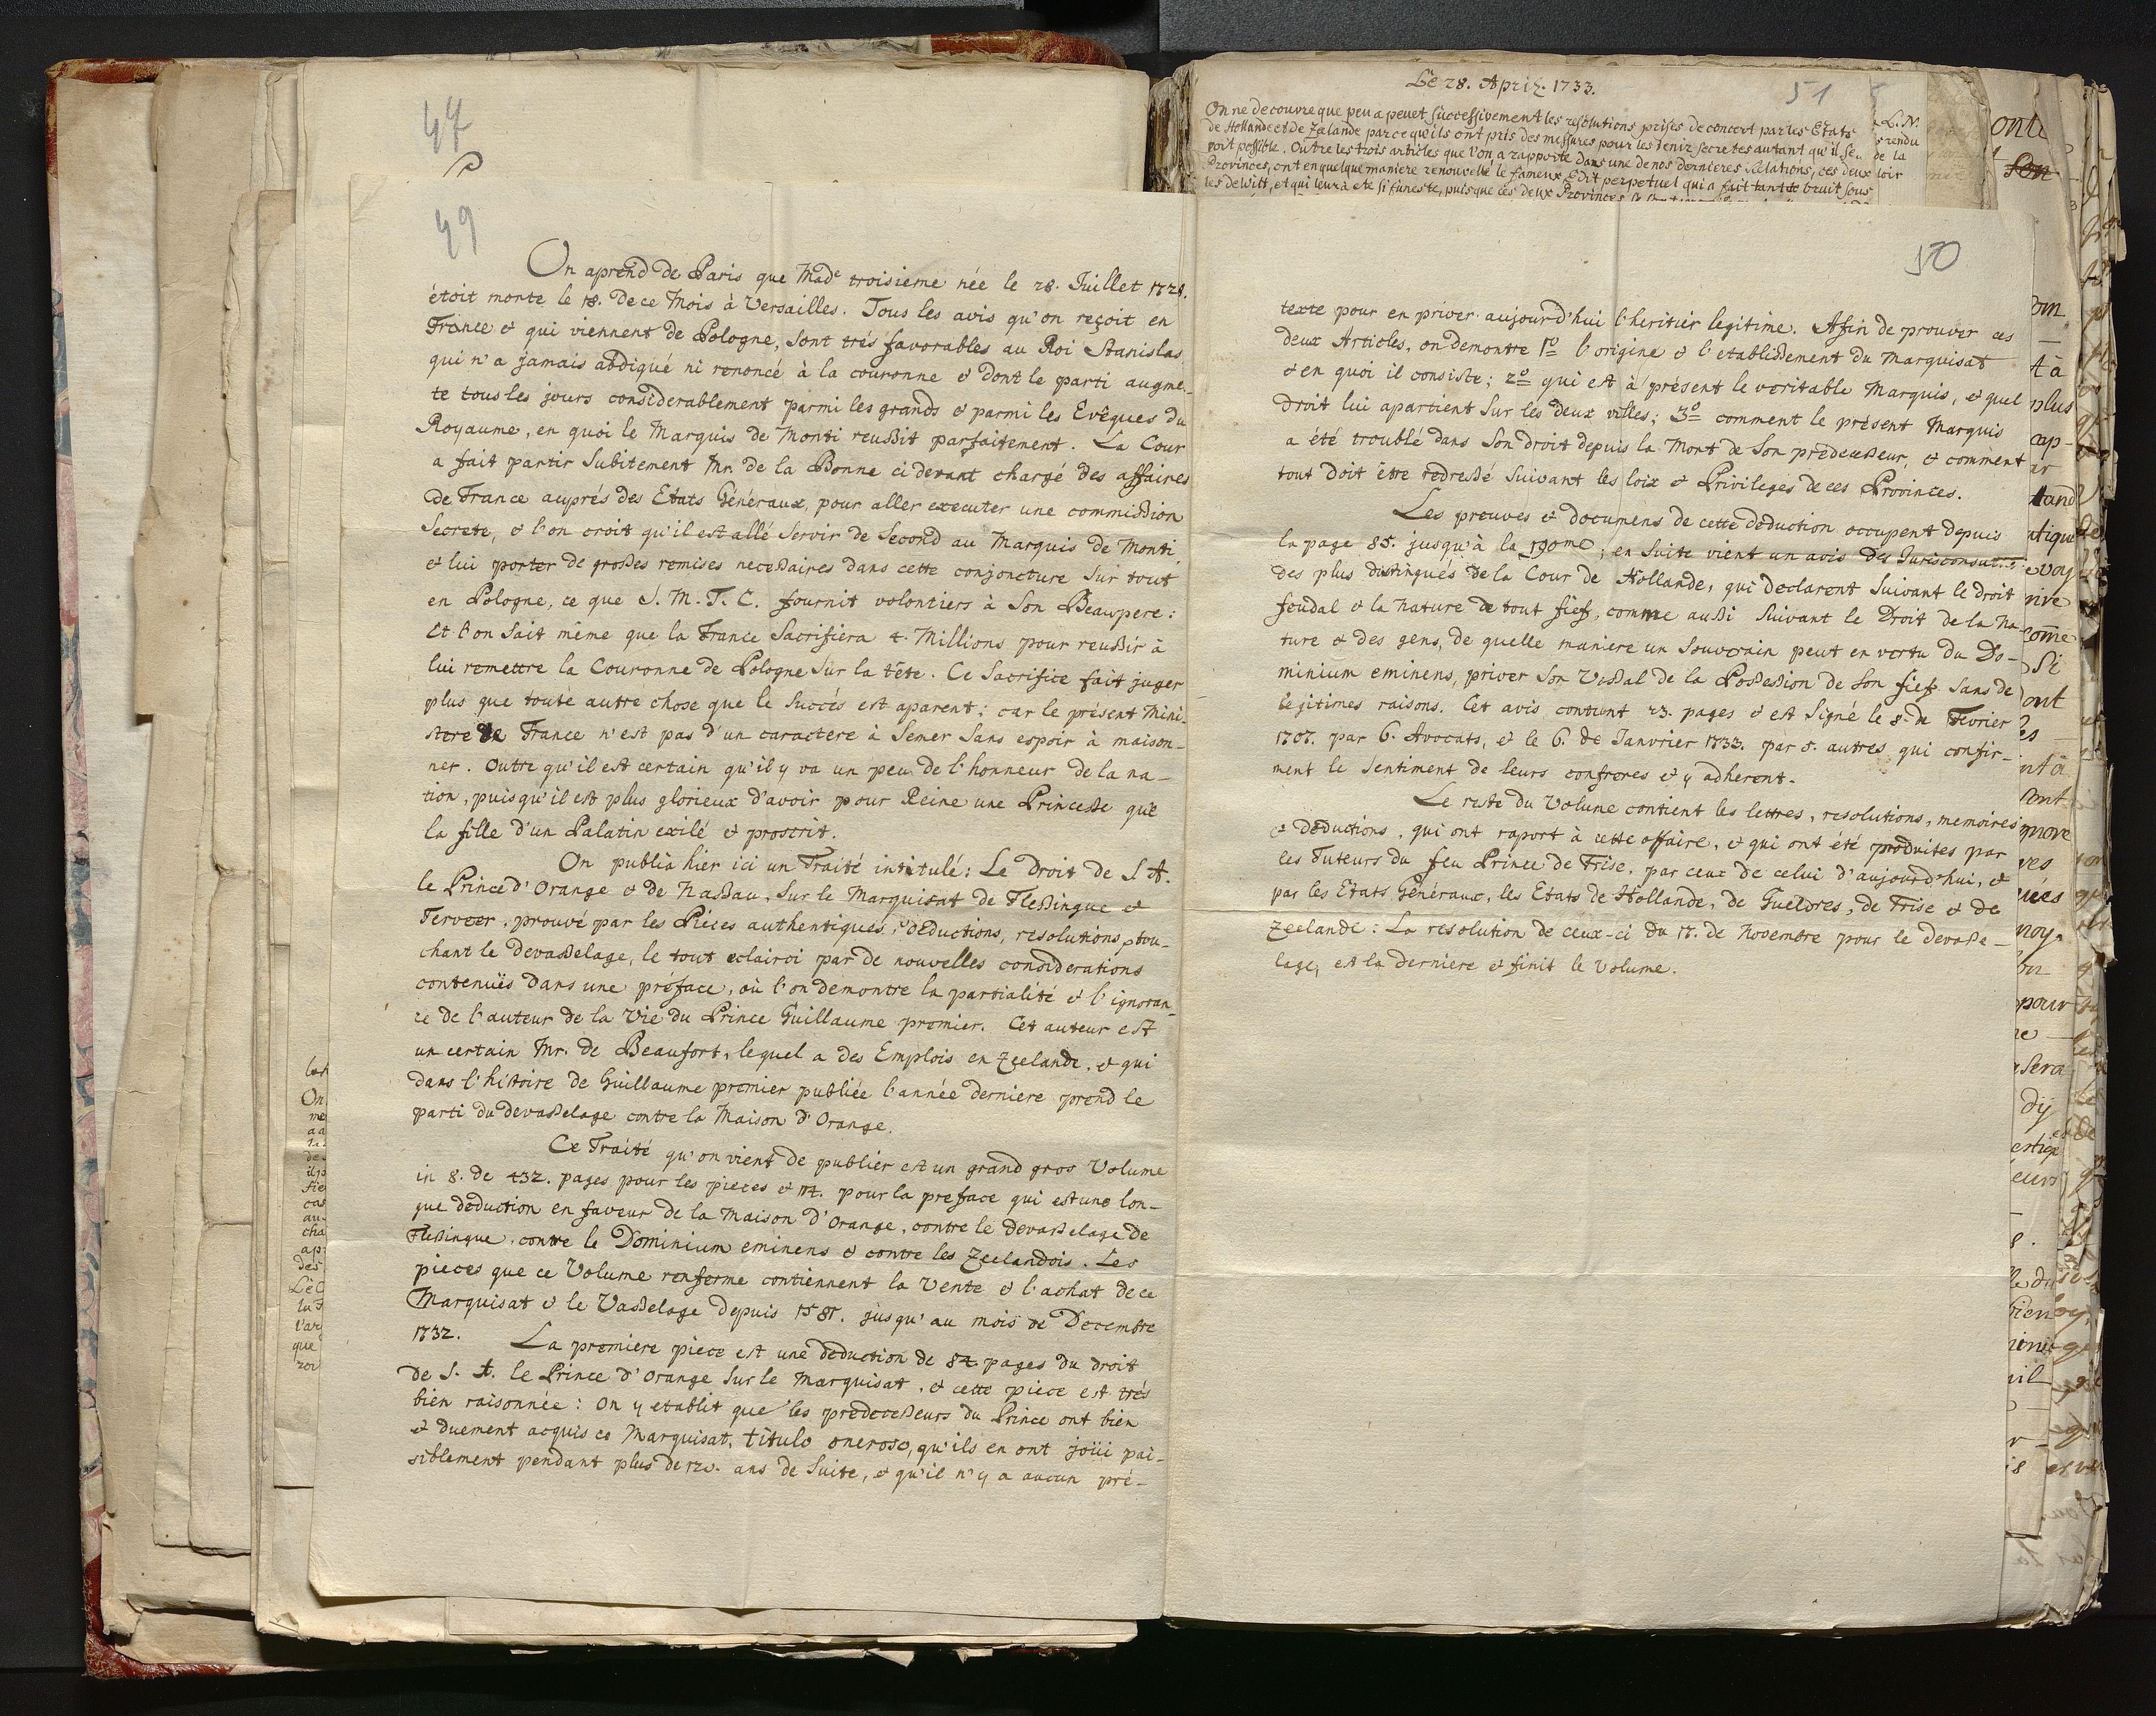 47
49
On aprend de Paris que Made troisieme née le 28. Juillet 1728.
étoit morte le 18. de ce Mois à Versailles. Tous les avis qu'on reçoit en
France & qui viennent de Pologne, sont trés favorables au Roi Stanislas
qui n'a jamais abdiqué ni renoncé à la couronne & dont le parti augmē-
te tous les jours considerablement parmi les grands & parmi les Evêques du
Royaume, en quoi le Marquis de Monti reussit parfaitement. La Cour
a fait partir subitement Mr. de la Bonne ci devant chargé des affaires
de France auprés des Etats Généraux, pour aller executer une commission
Secrete, & l'on croit qu'il est allé servir de Second au Marquis de Monti
& lui porter de grosses remises necessaires dans cette conjoncture sur tout
en Pologne, ce que S. M. T. C. fournit volontiers à Son Beaupere:
Et l'on sait même que la France Sacrifiera 4. Millions pour reussir à
lui remettre la Couronne de Pologne sur la tête. Ce Sacrifice fait juger
plus que toute autre chose que le Succés est aparent; car le présent Mini-
stere de France n'est pas d'un caractere à Semer Sans espoir à maison-
ner. Outre qu'il est certain qu'il y va un peu de l'honneur de la na-
tion, puisqu'il est plus glorieux d'avoir pour Reine une Princesse que
la fille d'un Palatin exilé & proscrit.
On publia hier ici un Traité intitulé: Le Droit de S A.
le Prince d'Orange & de Nassau, sur le Marquisat de Flessingue &
Terveer, prouvé par les Piéces authentiques, déductions, resolutions, tou-
chant le devasselage, le tout eclairci par de nouvelles considerations
contenuës dans une préface, où l'on demontre la partialité & l'ignoran-
ce de l'auteur de la Vie du Prince Guillaume premier. Cet auteur est
un certain Mr. de Beaufort, lequel a des Emplois en Zeelande, & qui
dans l'histoire de Guillaume premier publiée l'année derniere prend le
parti du devasselage contre la Maison d'Orange.
Ce Traité qu'on vient de publier est un grand gros Volume
in 8. de 432. pages pour les pieces & 114. pour la preface qui est une lon-
gue déduction en faveur de la Maison d'Orange, contre le devasselage de
Flessingue, contre le Dominium eminens & contre les Zeelandois. Les
pieces que ce Volume renferme contiennent la Vente & l'achat de ce
Marquisat & le Vasselage depuis 1581. jusqu'au mois de Decembre
1732. La premiere piece est une deduction de 84. pages du droit
de S. A. le Prince d'Orange sur le Marquisat, & cette piece est trés
bien raisonnée: On y etablit que les predecesseurs du Prince ont bien
& duement acquis ce Marquisat, titulo oneroso, qu'ils en ont joüi pai-
siblement pendant plus de 120. ans de suite, & qu'il n'y a aucun pré-
Le 28. April. 1733.
51
On ne decouvre que peu a peu et successivement les resolutions prises de concert par les Etats
de Hollande et de Zelande parce qu'ils ont pris des messures pour les tenir secretes autant qu'il seu
roit possible. Outre les trois articles que l'on a rapporté dans une de nos dernieres Relations, ces deux
Provinces, ont en quelque maniere renouvellé le fameux Edit perpetuel qui a fait tant de bruit sous
les de Witt, et qui leur a eté si funeste, puisque ces deux Provinces
50
texte pour en priver aujourd'hui l'heritier legitime. Afin de prouver ces
deux Articles, on demontre 1o l'origine & l'etablissement du Marquisat
& en quoi il consiste; 2o qui est à présent le veritable Marquis, & quel
droit lui apartient sur les deux villes; 3o comment le présent Marquis
a été troublé dans son droit depuis la Mort de son predecesseur, & comment
tout doit être redressé suivant les loix & Privileges de ces Provinces.
Les preuves & documens de cette déduction occupent depuis
la page 85. jusqu'à la 190me; en suite vient un avis des Jurisconsultes
des plus distingués de la Cour de Hollande, qui declarent suivant le droit
feudal & la Nature de tout fief, comme aussi suivant le Droit de la Na-
ture & des gens, de quelle maniere un Souverain peut en vertu du Do-
minium eminens, priver son Vassal de la Possession de son fief sans de
legitimes raisons. Cet avis contient 23. pages & est Signé le 8. de Fevrier
1707. par 6. Avocats, & le 6. de Janvrier 1733. par 5. autres qui confir-
ment le Sentiment de leurs confreres & y adherent.
Le reste du Volume contient les lettres, resolutions, memoires
& déductions, qui ont raport à cette affaire, & qui ont été produites par
les Tuteurs du feu Prince de Frise, par ceux de celui d'aujourd'hui, &
par les Etats Généraux, les Etats de Hollande, de Gueldres, de Frise & de
Zeelande: La resolution de ceux-ci du 17. de Novembre pour le devasse-
lage, est la derniere & finit le Volume.